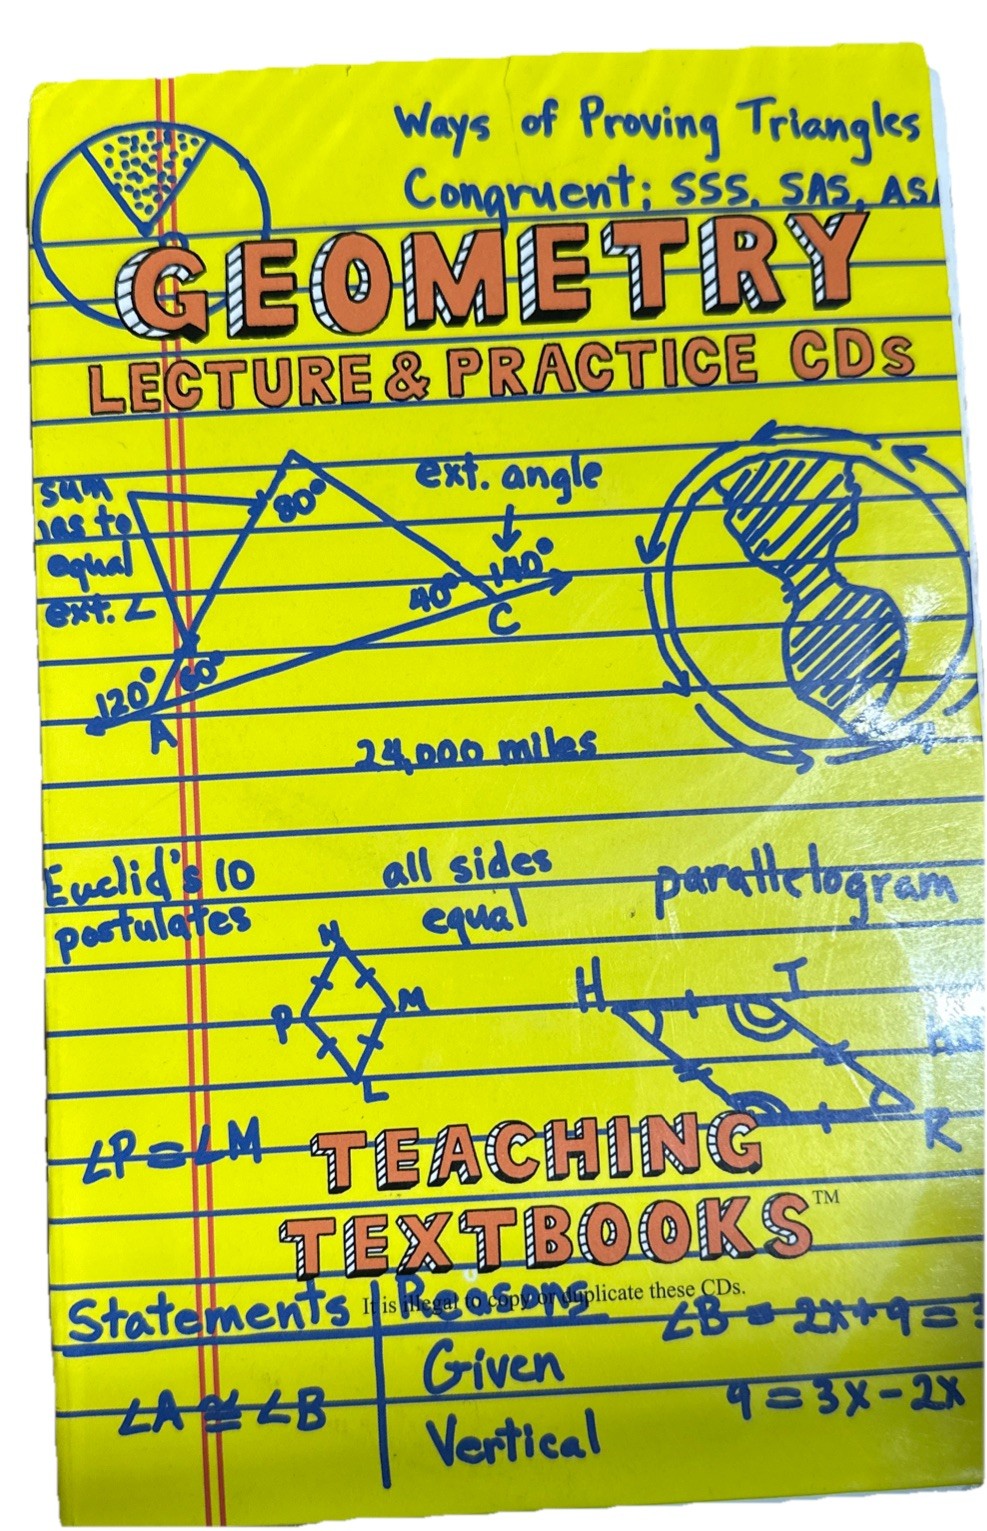 Ways of Proving Triangles
Congruent; SSS, SAS, ASA
GEOMETRY
LECTURE & PRACTICE CDs
sum
ext. angle
80°
equal
ext. ∠
40°
140°
C
120°
60°
A
24,000 miles
Euclid's 10
postulates
all sides
equal
parallelogram
N
P
M
L
H
I
R
∠P ≅ ∠M
TEACHING
TEXTBOOKS™
It is illegal to copy or duplicate these CDs.
Statements
Reasons
∠B = 2x+9=3
Given
∠A ≅ ∠B
9=3x-2x
Vertical